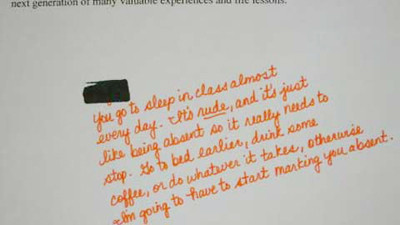 next generation of many valuable experiences and life lessons.
you go to sleep in class almost
every day. It's rude, and it's just
like being absent so it really needs to
stop. Go to bed earlier, drink some
coffee, or do whatever it takes, otherwise
I'm going to have to start marking you absent.